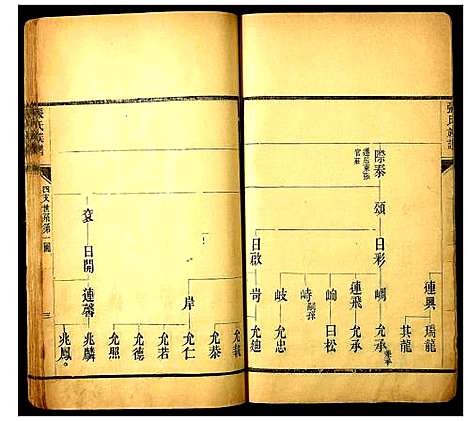 張氏族譜
際泰
遷居東路
官莊
頌
日彩
日啟
蓮興
瑞龍
其龍
崵
允承
蓮飛
允承
峋
曰松
峙
嗣孫
岐
允忠
岢
允迪
張氏族譜
四支世系第一圖
三
袞
日開
岸
蓮馨
允載
允恭
允仁
允若
允德
允熙
兆麟
兆鳳。